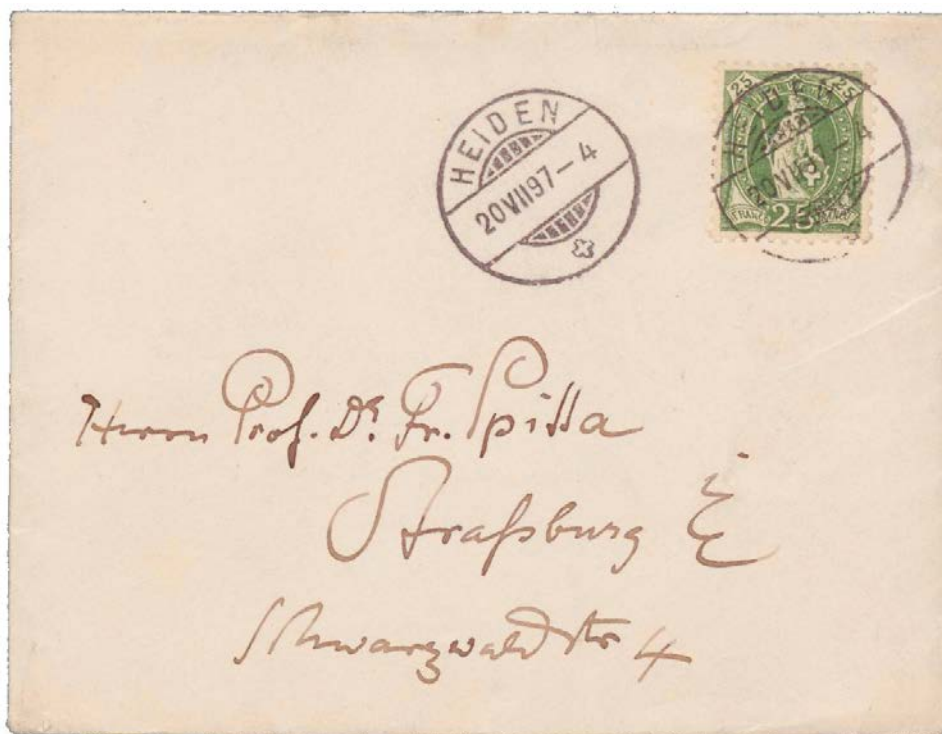 HEIDEN
20 VII 97 – 4
25 25
HEIDEN
20 VII 97 – 4
FRANCO
25
Herrn Prof. Dr. Fr. Spitta
Straßburg i/E
Schwarzwaldstr 4